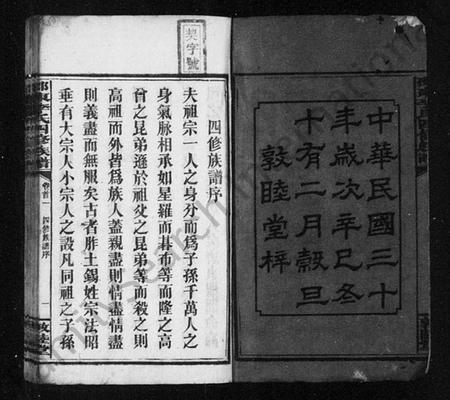 中華民國三十
年歲次辛巳冬
十有二月穀旦
敦睦堂梓
契字號
四修族譜序
夫祖宗一人之身分而爲子孫千萬人之
身氣脉相承如星羅而棊布等而隆之高
曾之昆弟遜於祖父之昆弟等而殺之則
高祖而外皆爲族人蓋親盡則情盡情盡
則義盡而無服矣古者胙土錫姓宗法昭
垂有大宗人小宗人之設凡同祖之子孫
氏四修族譜
卷首一
四修族譜序
一
敦睦堂